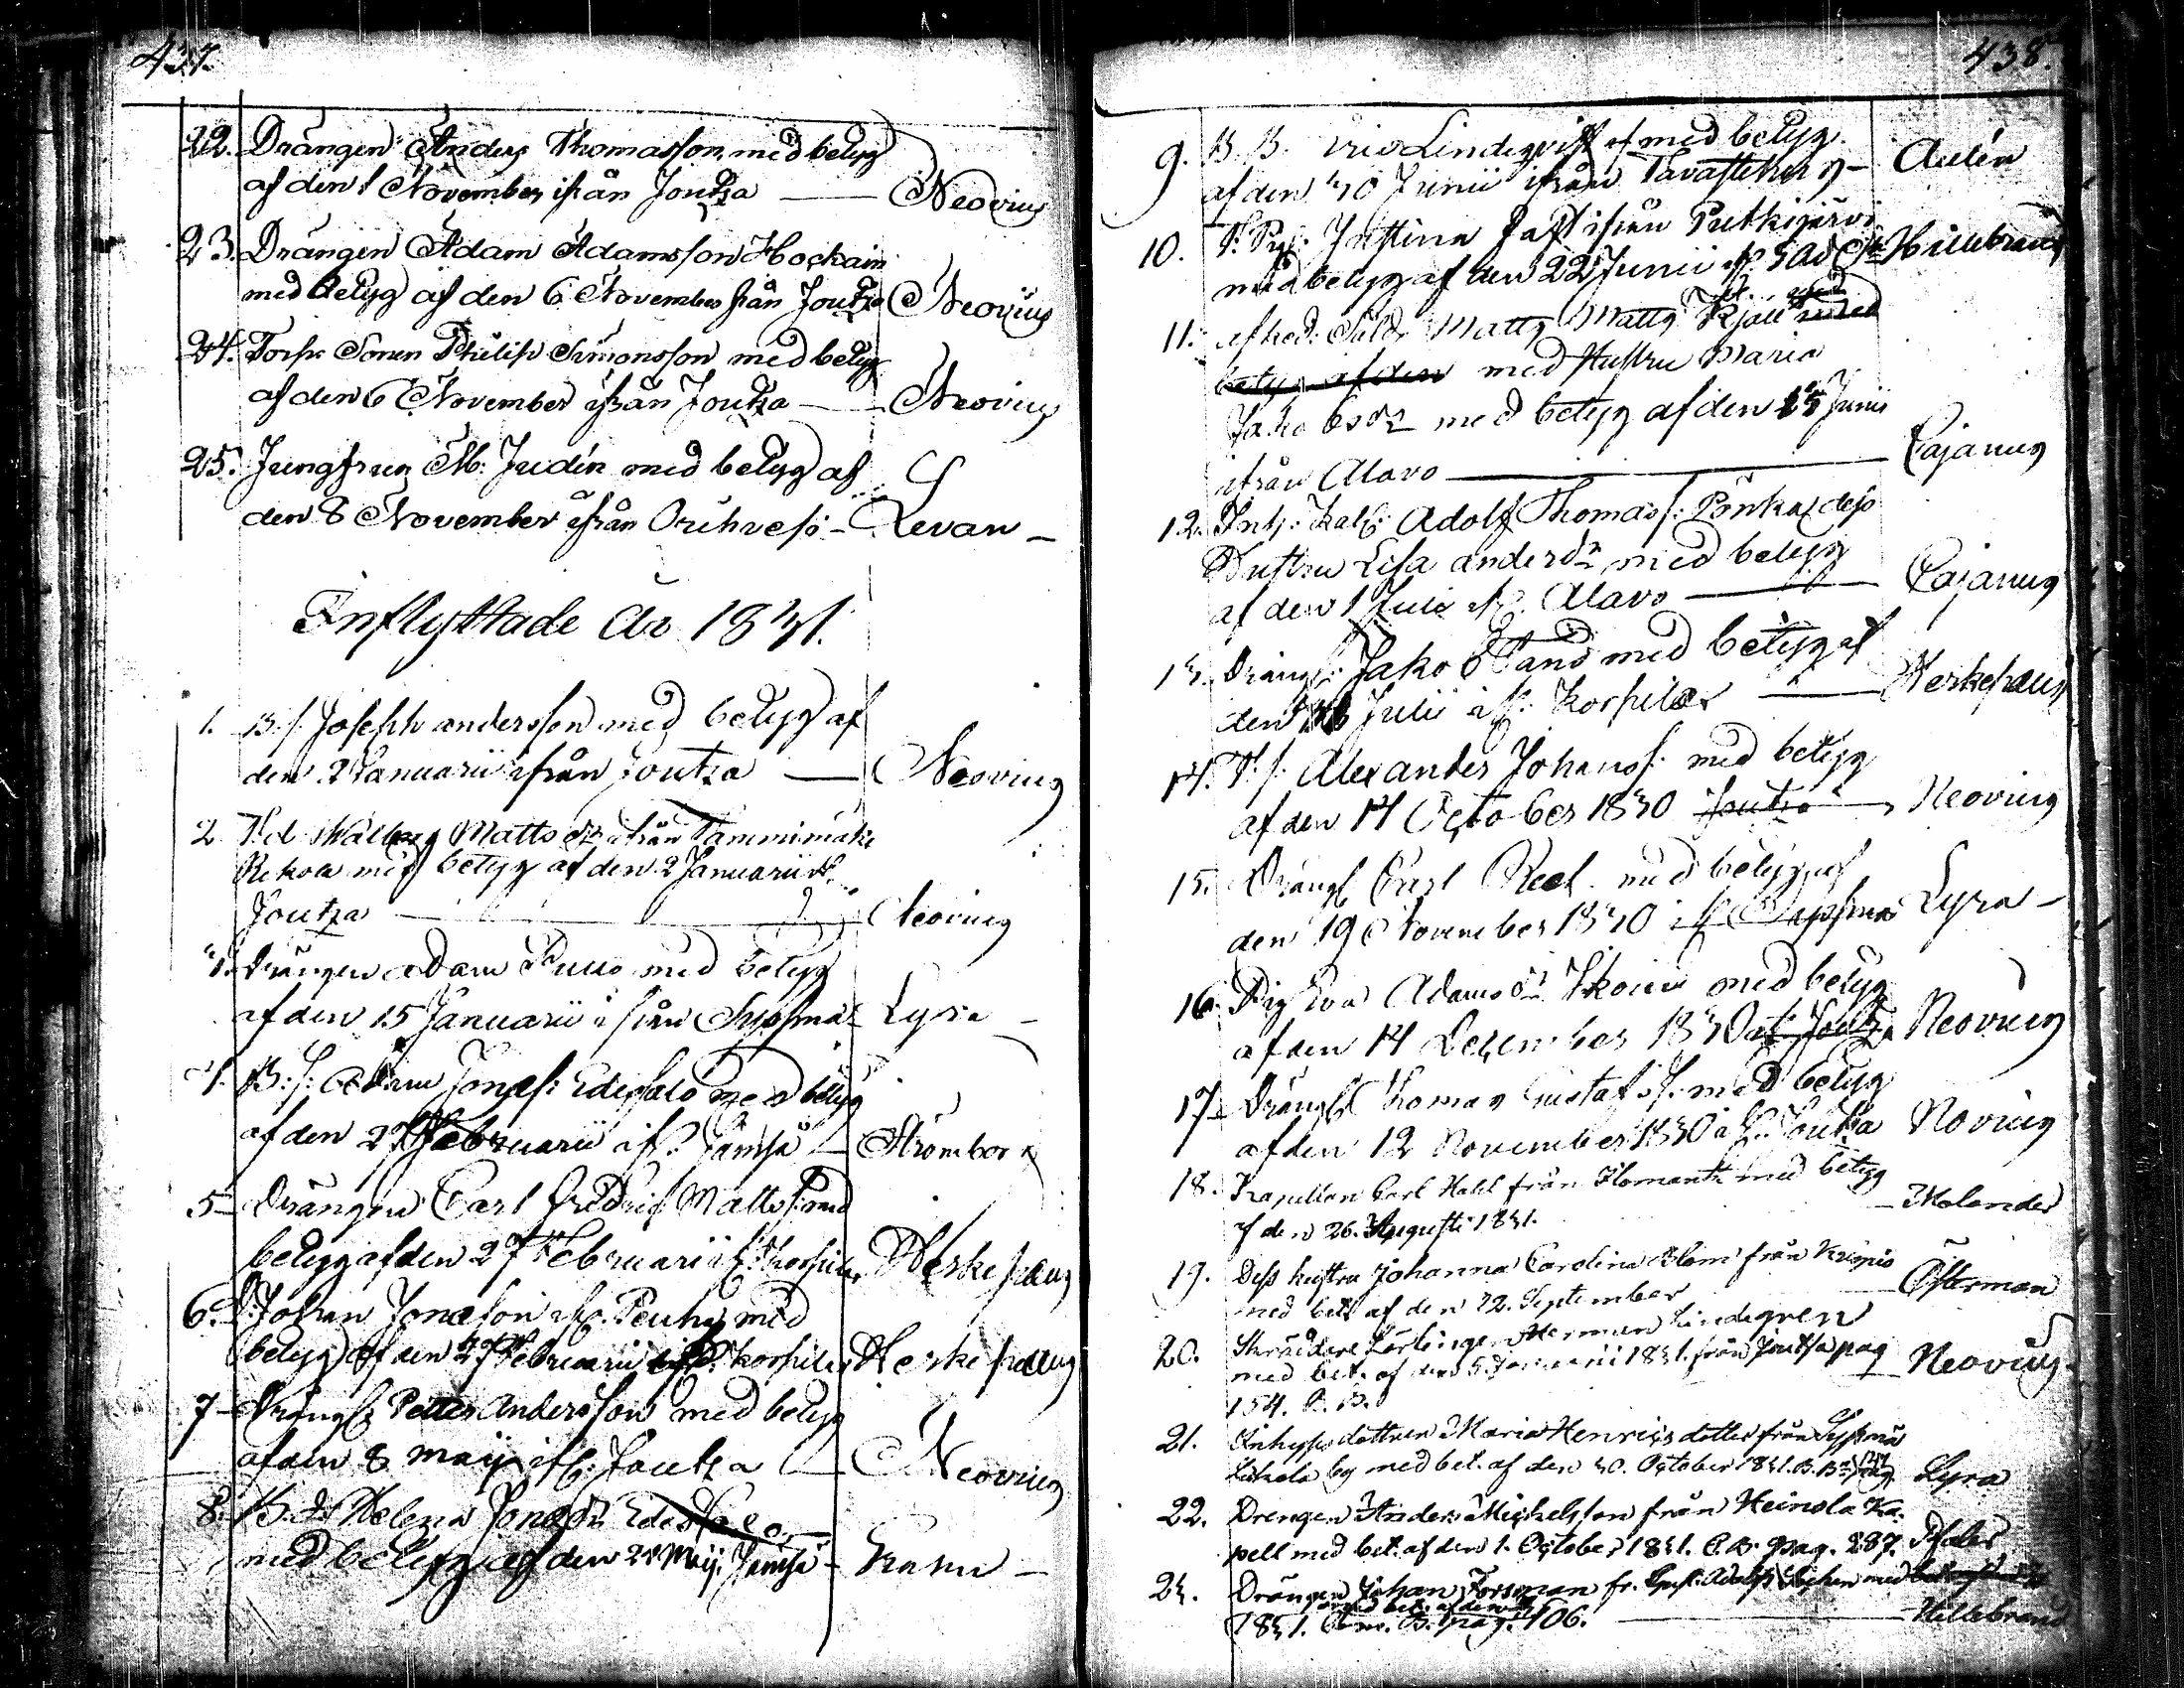 437.
22. Drängen Anders Thomasson med betyg
af den 1 November ifrån Joutza — Neovius
23. Drängen Adam Adamsson Hockain
med betyg af den 6 November från Joutza Neovius
24. Torp Sonen Philip Simonsson med betyg
af den 6 November ifrån Joutza — Neovius
25. Jungfrun M: Judin med betyg af
den 8 November ifrån Orihvesi — Levan —
Inflyttade År 1831.
1. B: s. Joseph andersson med betyg af
den 2 Januarii ifrån Joutza — Neovius
2 T: d Walborg Matts dr ifrån Tammimäki
Rekola med betyg af den 2 Januarii if.
Joutza — Neovius
3. Drängen adam Puus med betyg
af den 15 Januarii ifrån Sysmä Lyra —
4. B: s: Adam Jonas s: Edessalo med betyg
af den 27 Februarii if: Jämsä — Strömborg
5 — Drängen Carl Fredric Matts s: med
betyg af den 27 Februarii if: Korpilax Werkepæus
6. D: Johan Jonasson if. Peuha med
betyg af den 27 Februarii if. Korpilax Werkepæus
7 — Drängs Petter Andersson med betyg
af den 8 Maij if: Joutza — Neovius
8. B. d. Helena Jonas dr Edessalo
med betyg af den 28 Maij. Jämsä —
438.
9. B. B. Eric Lindeqvist med betyg
af den 30 Junii ifrån Tavastehus — Aulén
10. P. Justina ifrån Putkijärvi
med betyg af den 22 Junii Hillebrand
11. afsked: Sold: Matts Matts Kjäll med
betyg af den med Hustru Maria
Jakobs dr med betyg af den 15 Junii
ifrån Alavo — Cajanus
12. Inh: Karl: Adolf Thomas s: Pönkä dess
Hustru Lisa anders dr med betyg
af den 1 Juli if. Alavo — Cajanus
13. Drängs: Jakob Tand med betyg af
den Julii if: Korpilax — Werkepæus
14. T: s: Alexander Johans s: med betyg
af den 14 October 1830 Joutza — Neovius
15. Drängs Carl Reel med betyg af
den 19 November 1830 if Sysmä Lyra —
16. Pig Eva Adams dr Ikoin med betyg
af den 14 December 1830 if Joutza Neovius
17 — Drängs Thomas Gustafs s: med betyg
af den 12 November 1830 if. Joutza Neovius
18. Kapellan Carl Hahl från Ilomants med betyg
af den 26. Augusti 1831. — Molander
19. Dess hustru Johanna Carolina Blom från Kuopio
med bet. af den 12. September — Österman
20. Skräddare Lärlingen Herman Lindegren
med bet. af den 5. Januarii 1831. från Joutsa pag — Neovius
154. C. B.
21. Inhyses dottren Maria Henrics dotter från Sysmä
Liikola by med bet. af den 30. October 1831. C. B. pag. Lyra
22. Drengen Anders Michelsson från Heinola Ka-
pell med bet. af den 1. October 1831. C. B. pag. 287. Pfaler
23. Drängen Johan Forsman fr. Adolfs med
med bet. af den
1831. B. pag. 106. — Hillebrand